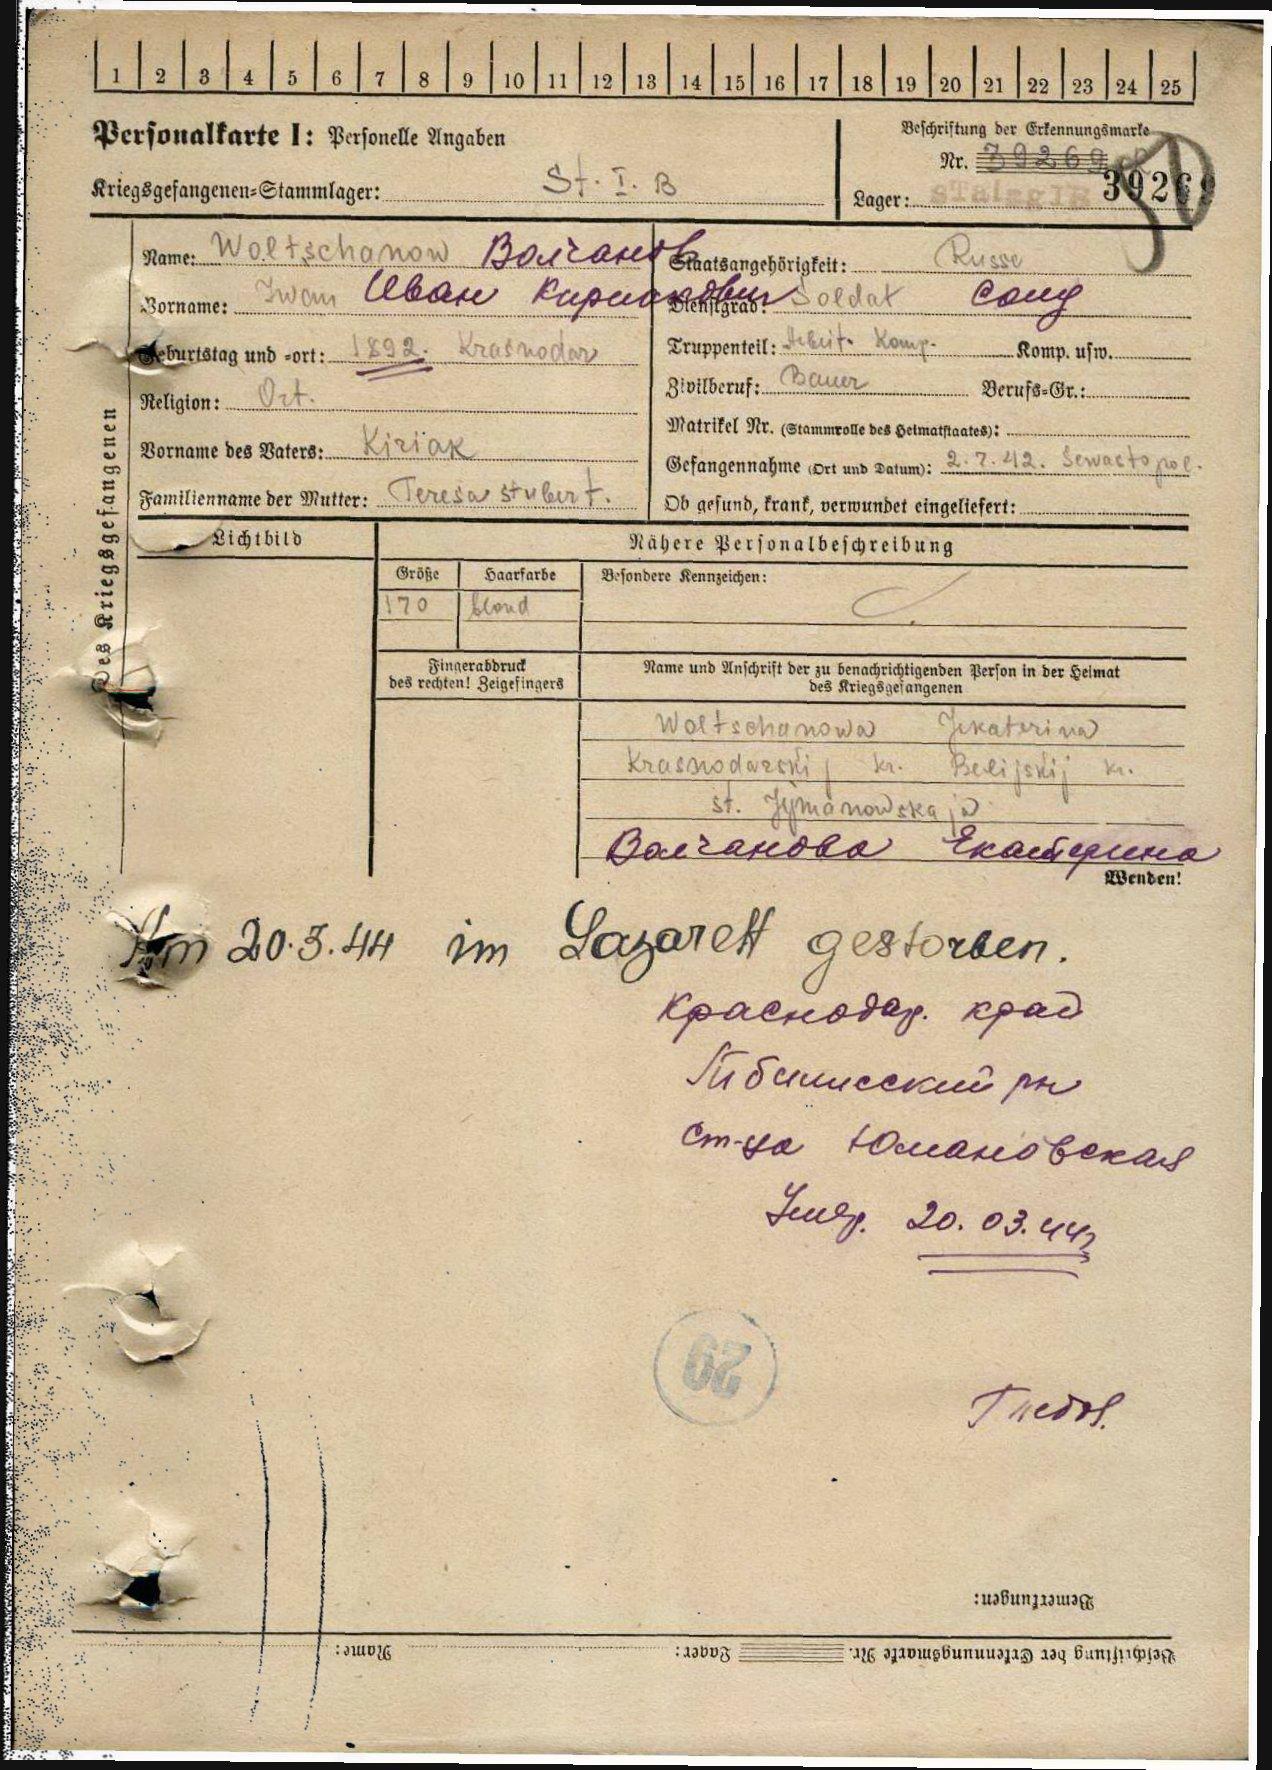 1 2 3 4 5 6 7 8 9 10 11 12 13 14 15 16 17 18 19 20 21 22 23 24 25
Personalkarte I: Personelle Angaben
Kriegsgefangenen=Stammlager: St. I. B
Beschriftung der Erkennungsmarke
Nr. 39269
Lager: Stalag IB 39269
Des Kriegsgefangenen
Name: Woltschanow Волчанов
Vorname: Iwan Иван Кириакович
Geburtstag und =ort: 1892. Krasnodar
Religion: Ort.
Vorname des Vaters: Kiriak
Familienname der Mutter: Teresa Stubert.
Staatsangehörigkeit: Russe
Dienstgrad: Soldat Солд
Truppenteil: Arbeit. Komp. Komp. usw.
Zivilberuf: Bauer Berufs=Gr.:
Matrikel Nr. (Stammrolle des Heimatstaates):
Gefangennahme (Ort und Datum): 2.7.42. Sewastopol.
Ob gesund, krank, verwundet eingeliefert:
Lichtbild
Nähere Personalbeschreibung
Größe Haarfarbe Besondere Kennzeichen:
170 blond
Fingerabdruck
des rechten! Zeigefingers
Name und Anschrift der zu benachrichtigenden Person in der Heimat
des Kriegsgefangenen
Woltschanowa Jekaterina
Krasnodarskij kr. Belijskij kr.
st. Jymanowskaja
Волчанова Екатерина
Wenden!
Am 20.3.44 im Lazarett gestorben.
Краснодар. край
Тбилисский рн
ст-ца Юмановская
Умер. 20.03.44г
29
Bemerkungen:
Beschriftung der Erkennungsmarke Nr. Lager: Name: